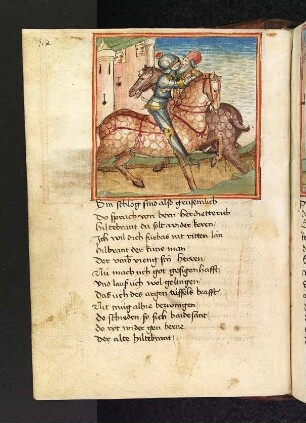 Din schleg sind also greüsenlich
Do sprach von bern her dietterich
hiltebrant du solt wider keren
Ich wil dich fürbas nit ritten lan
hilbrant der küne man
Der vmb vieng sin herren
Nu mach uch got gesigenhafft
Vnd lauß uch wol gelingen
Das uch des argen tüffels krafft
Nit mug alhie bezwingen
do schieden so sich baidesant
do rit wider gen berne
Der alte hiltebrant